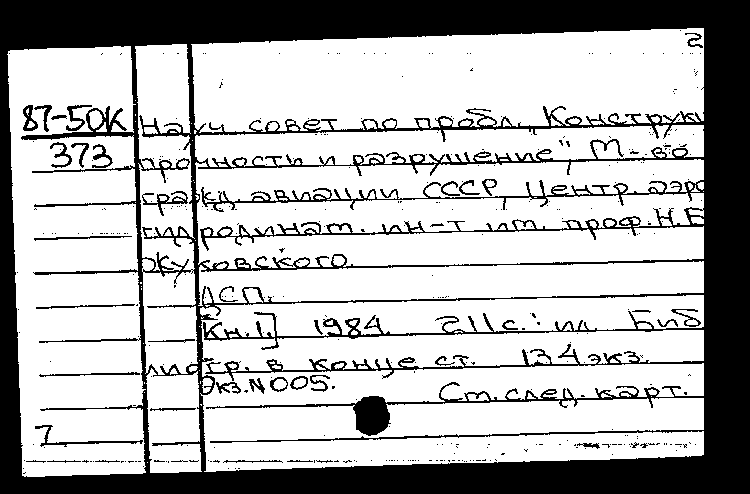 2
87-50К Науч совет по пробл. „Конструкц
373 прочности и разрушение", М-во
гражд. авиации СССР, Центр. аэро
гидродинам. ин-т им. проф. Н.Е
Жуковского.
ДСП.
[Кн.1.] 1984. 211с.: ил Биб
лиогр. в конце ст. 134 экз.
Экз.N005.
Ст. след. карт.
7